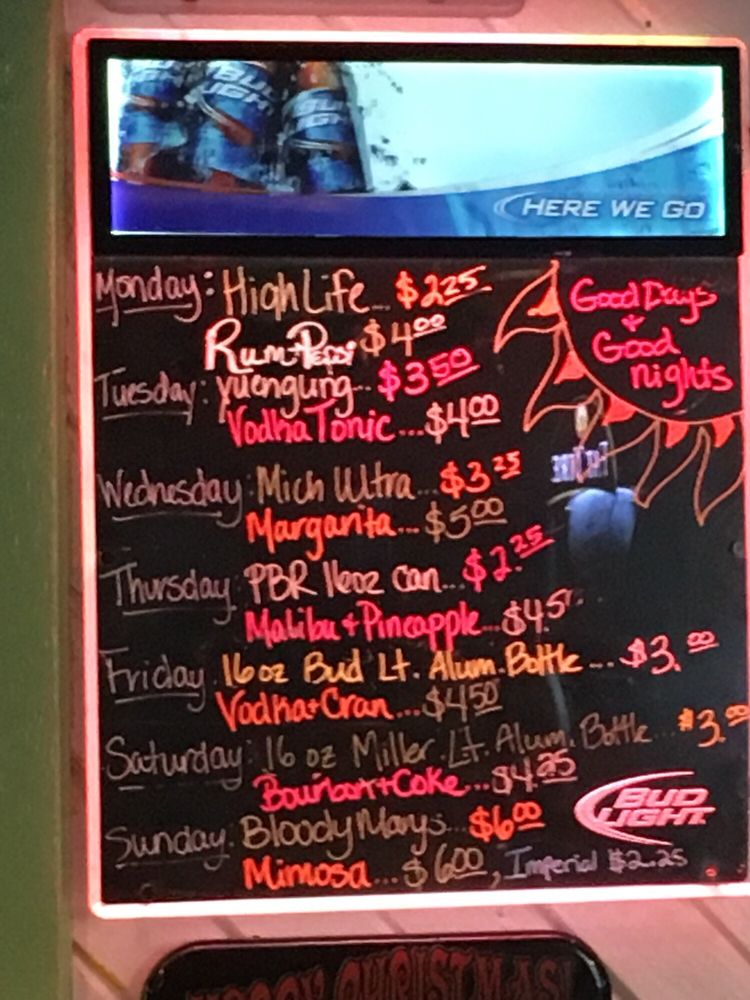 BUD LIGHT
BUD LIGHT
BUD LIGHT
HERE WE GO
Monday: High Life... $2.25
Rum+Pepsi $4.00
Good Days
+
Good
nights
Tuesday: yuengling... $3.50
Vodka Tonic... $4.00
Wednesday: Mich Ultra... $3.25
Margarita... $5.00
Thursday: PBR 16oz can... $2.25
Malibu + Pineapple... $4.5
Friday: 16oz Bud Lt. Alum. Bottle... $3.00
Vodka+Cran... $4.50
Saturday: 16 oz Miller Lt. Alum. Bottle... $3.00
Bourbon+Coke... $4.25
BUD LIGHT
Sunday: Bloody Marys... $6.00
Mimosa... $6.00, Imperial $2.25
MERRY CHRISTMAS!